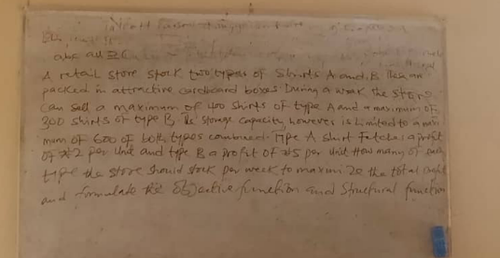 are all ≥ 0
A retail store stock two types of Shirts A and B these are
packed in attractive cardboard boxes During a week the store
can sell a maximum of 400 shirts of type A and a maximum of
300 shirts of type B the storage capacity however is limited to a maxi
mum of 600 of both types combined. Type A shirt fetches a profit
of ₦2 per Unit and type B a profit of ₦5 per Unit How many of each
type the store should stock per week to maximize the total profit
and formulate the objective function and Structural function